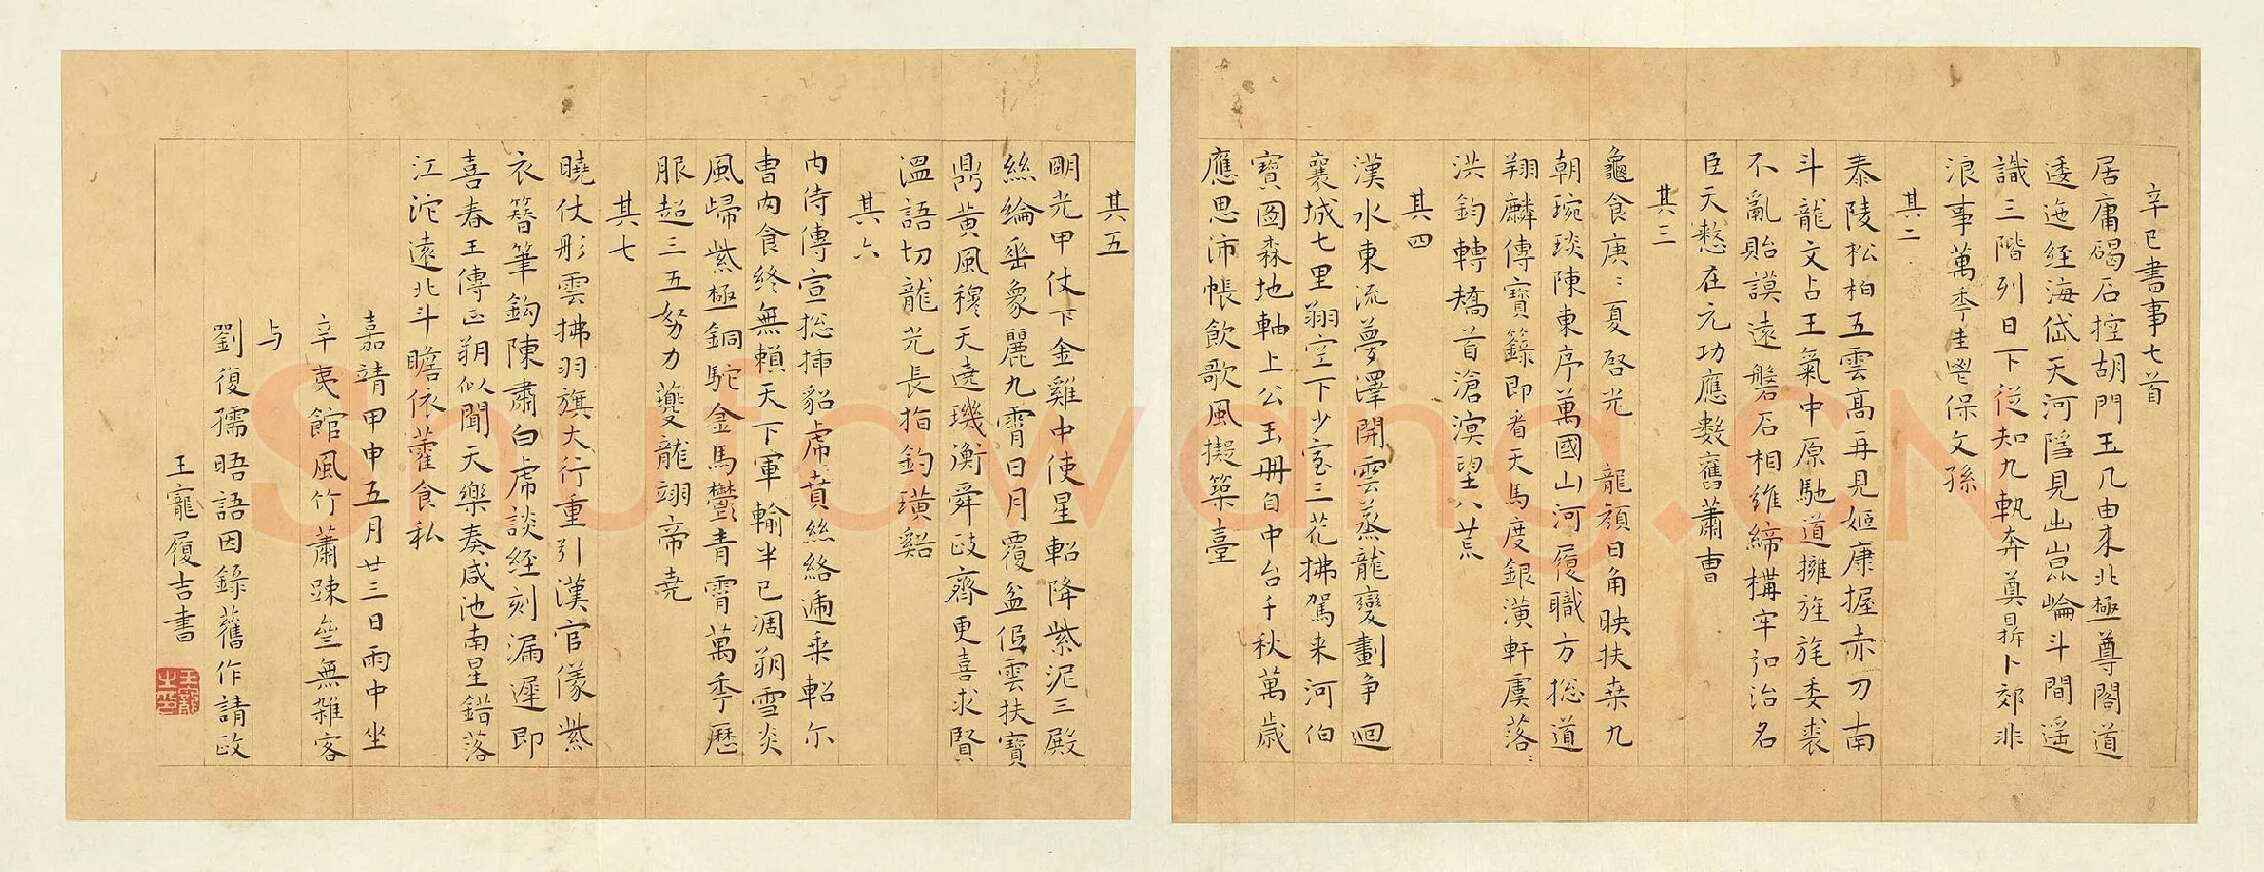 辛巳書事七首
居庸碣石控胡門玉几由来北極尊閣道
逶迤経海岱天河隱見出崑崘斗間遥
識三階列日下従知九軌奔莫擬卜郊非
浪事萬季圭鬯保文孫
其二
泰陵松柏五雲高再見姬康握赤刀南
斗龍文占王氣中原馳道擁旌旄委裘
不亂貽謨遠磐石相維締構牢弘治名
臣天憗在元功應數舊蕭曹
其三
龜食庚:夏啓光 龍顔日角映扶桒九
朝琬琰陳東序萬國山河履職方揔道
翔麟傳寶籙即看天馬度銀潢軒虞落:
洪鈞轉矯首滄溟望八荒
其四
漢水東流夢澤開雲蒸龍變劃争迴
襄城七里翔空下少室三花拂駕来河伯
寶圖森地軸上公玉冊自中台千秋萬歲
應思沛帳飲歌風擬築臺
其五
明光甲仗下金雞中使星軺降紫泥三殿
絲綸垂象麗九霄日月覆盆低雲扶寶
鼎黄風穆天遶璣衡舜政齊更喜求賢
温語切龍光長指釣璜谿
其六
内侍傳宣揔揷貂虎賁絲絡遍乗軺尔
曹肉食終無賴天下軍輸半已凋朔雪炎
風歸紫極銅駝金馬鬱青霄萬季歷
服超三五努力夔龍翊帝堯
其七
曉仗彤雲拂羽旗大行重引漢官儀紫
衣簪筆鈎陳肅白虎談経刻漏遲即
喜春王傳正朔似聞天樂奏咸池南星錯落
江沱遠北斗瞻依藿食私
嘉靖甲申五月廿三日雨中坐
辛夷館風竹蕭踈㘴無雜客
与
劉復孺晤語因錄舊作請政
王寵履吉書
王寵之印
shufawang.CN